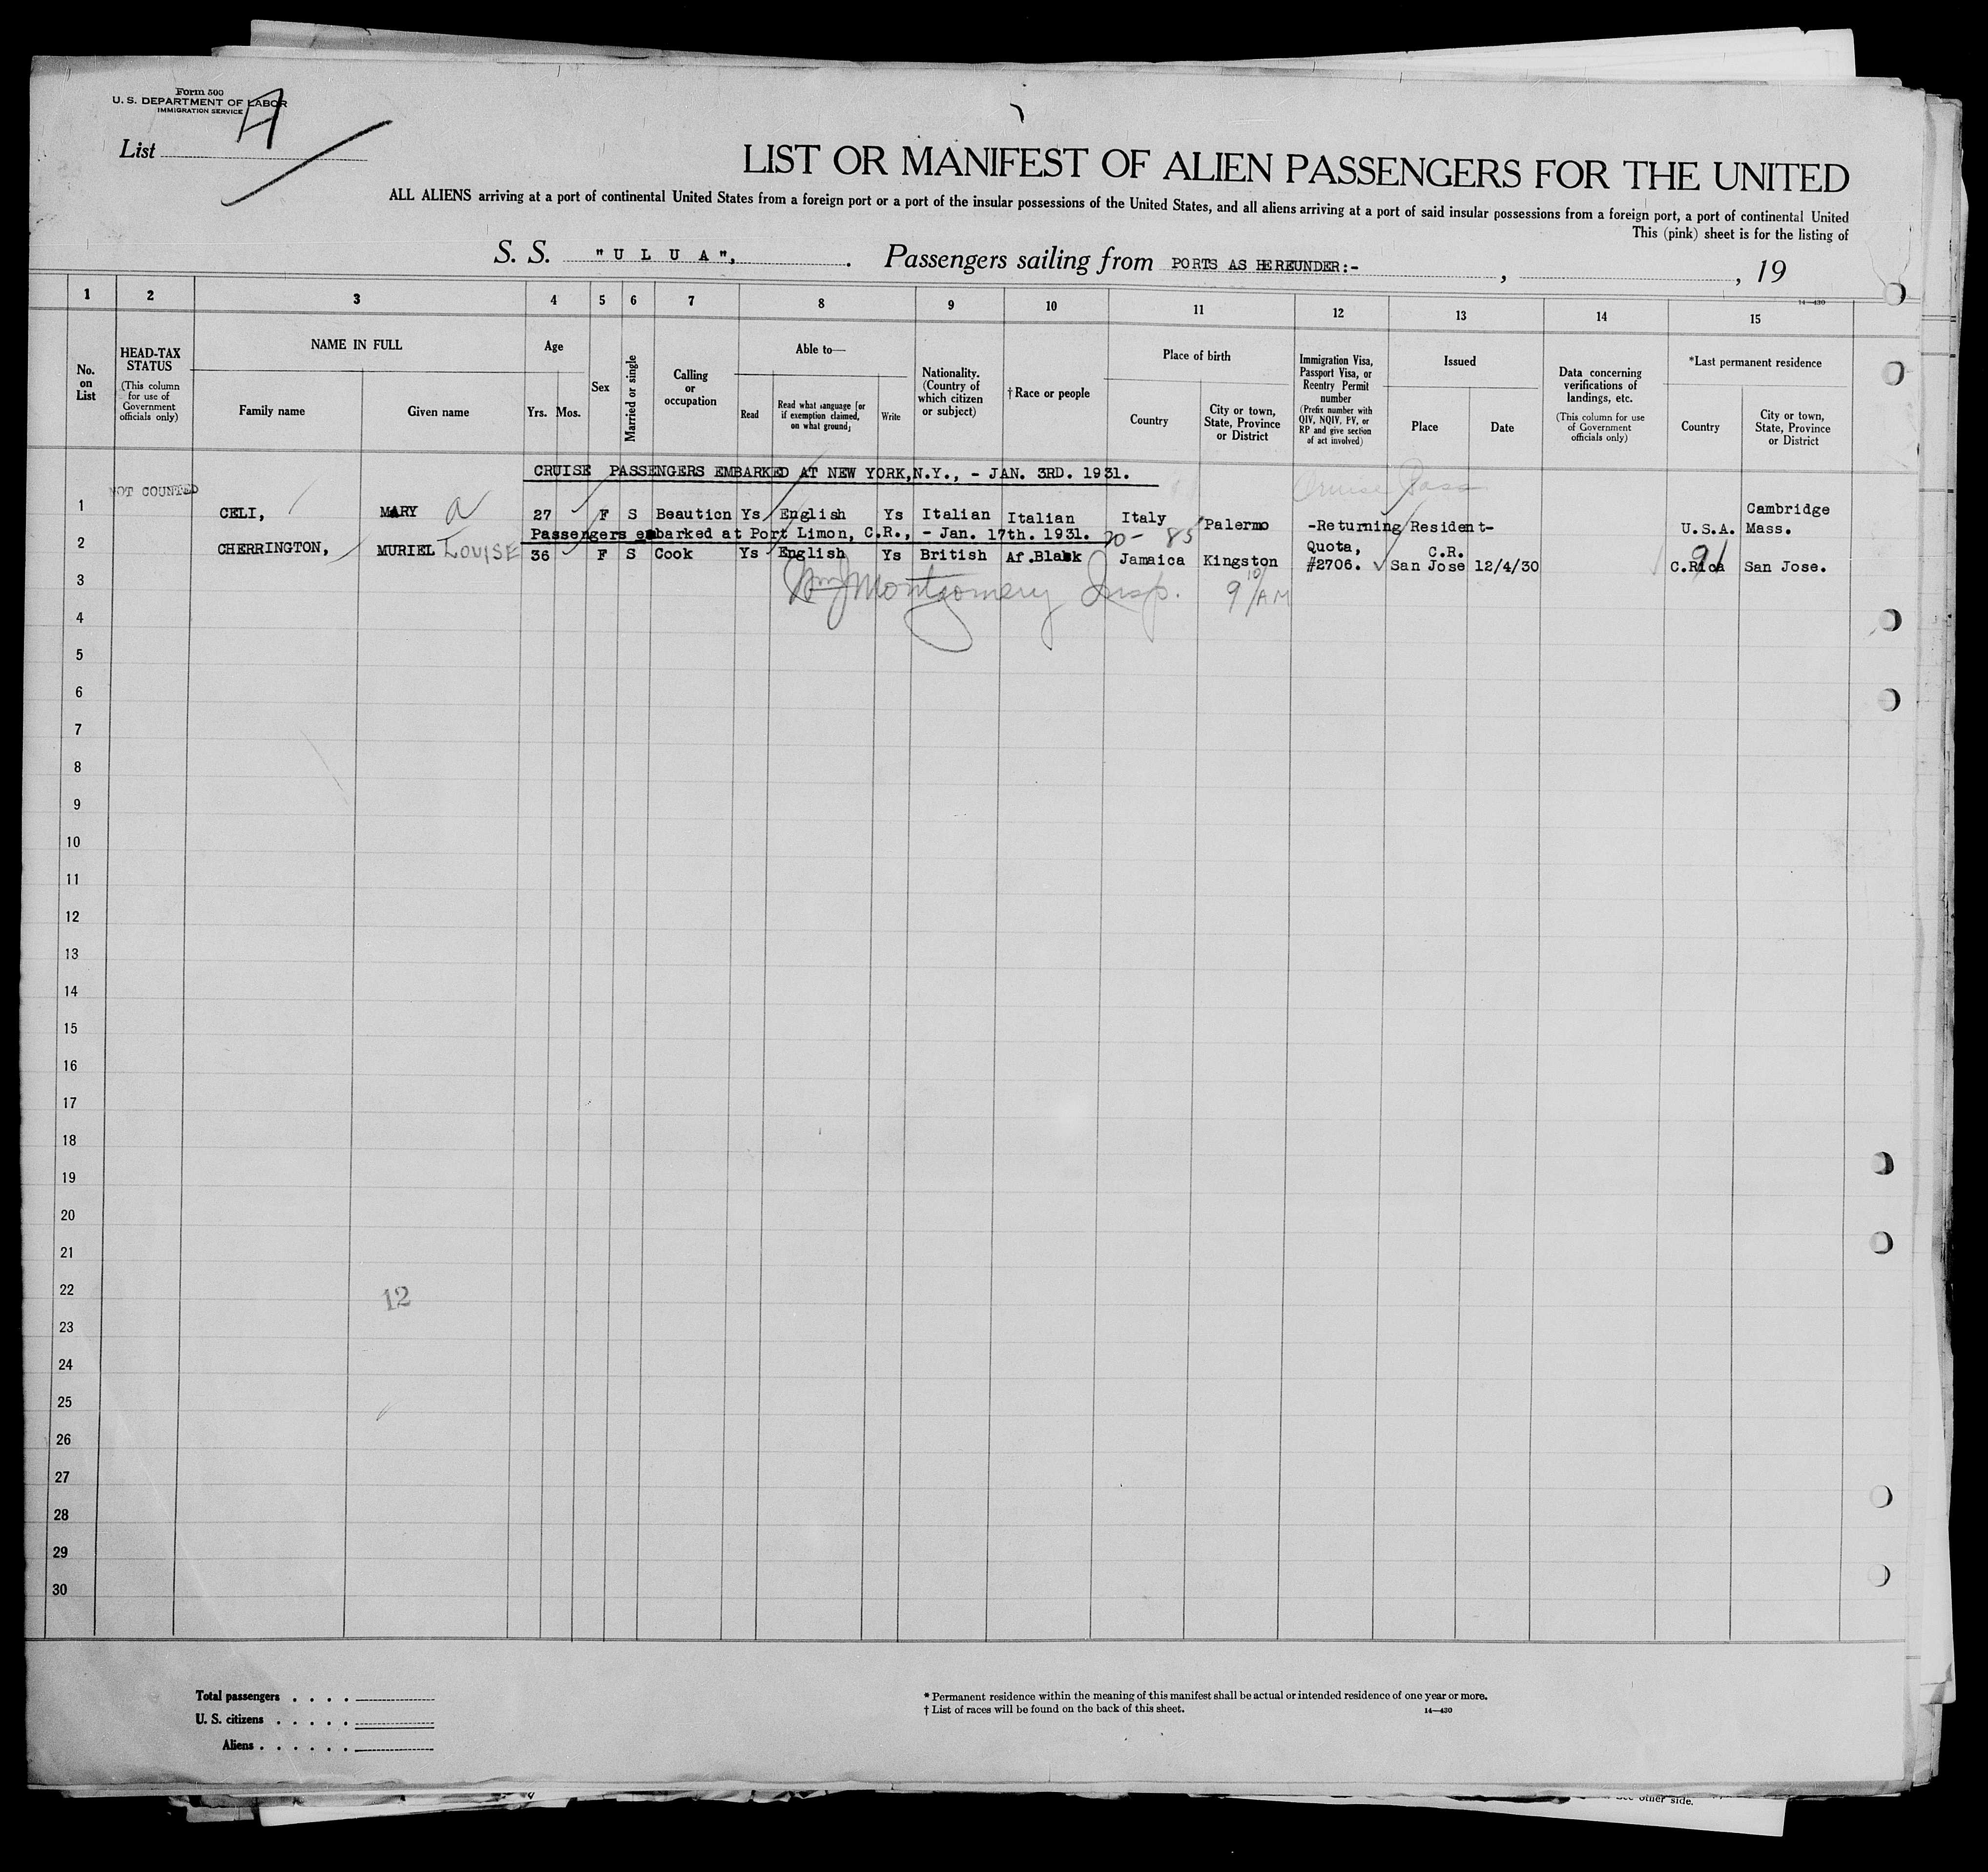 Form 500
U. S. DEPARTMENT OF LABOR
IMMIGRATION SERVICE
List
LIST OR MANIFEST OF ALIEN PASSENGERS FOR THE UNITED
ALL ALIENS arriving at a port of continental United States from a foreign port or a port of the insular possessions of the United States, and all aliens arriving at a port of said insular possessions from a foreign port, a port of continental United
This (pink) sheet is for the listing of
S. S. "U L U A", . Passengers sailing from PORTS AS HEREUNDER:- , , 19
14—430
1 2 3 4 5 6 7 8 9 10 11 12 13 14 15
No. on List
HEAD-TAX STATUS (This column for use of Government officials only)
NAME IN FULL
Family name
Given name
Age
Yrs. Mos.
Sex
Married or single
Calling or occupation
Able to—
Read
Read what language [or if exemption claimed, on what ground]
Write
Nationality. (Country of which citizen or subject)
†Race or people
Place of birth
Country
City or town, State, Province or District
Immigration Visa, Passport Visa, or Reentry Permit number (Prefix number with QIV, NQIV, PV, or RP and give section of act involved)
Issued
Place
Date
Data concerning verifications of landings, etc. (This column for use of Government officials only)
*Last permanent residence
Country
City or town, State, Province or District
CRUISE PASSENGERS EMBARKED AT NEW YORK,N.Y., - JAN. 3RD. 1931.
NOT COUNTED
Cruise Pass
1 CELI, MARY a 27 F S Beauticn Ys English Ys Italian Italian Italy Palermo -Returning Resident- U.S.A. Cambridge Mass.
Passengers embarked at Port Limon, C.R., - Jan. 17th. 1931. 20- 85
2 CHERRINGTON, MURIEL LOUISE 36 F S Cook Ys English Ys British Af.Black Jamaica Kingston Quota, #2706. C.R. San Jose 12/4/30 C.Rica San Jose.
91
3
Wm J Montgomery Insp. 9 10/AM
4
5
6
7
8
9
10
11
12
13
14
15
16
17
18
19
20
21
22
12
23
24
25
26
27
28
29
30
Total passengers . . . .
U. S. citizens . . . . .
Aliens . . . . . .
* Permanent residence within the meaning of this manifest shall be actual or intended residence of one year or more.
† List of races will be found on the back of this sheet.
14—430
other side.